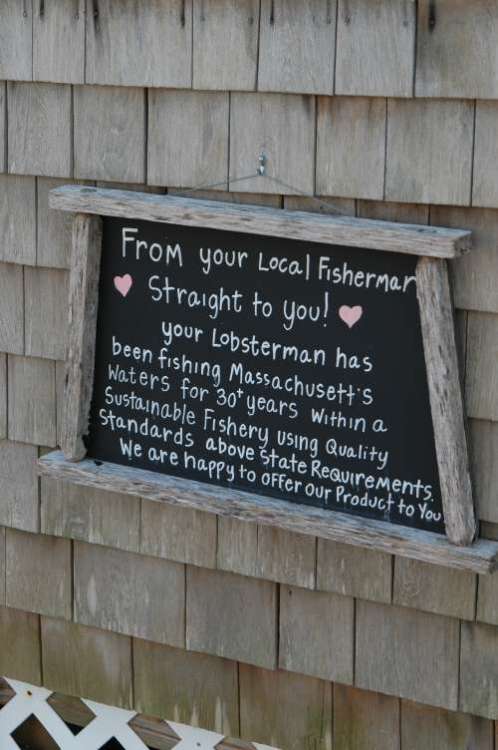 From your Local Fisherman
Straight to you!
your Lobsterman has
been fishing Massachusett's
Waters for 30+ years within a
Sustainable Fishery using Quality
Standards above State Requirements.
We are happy to offer our Product to You